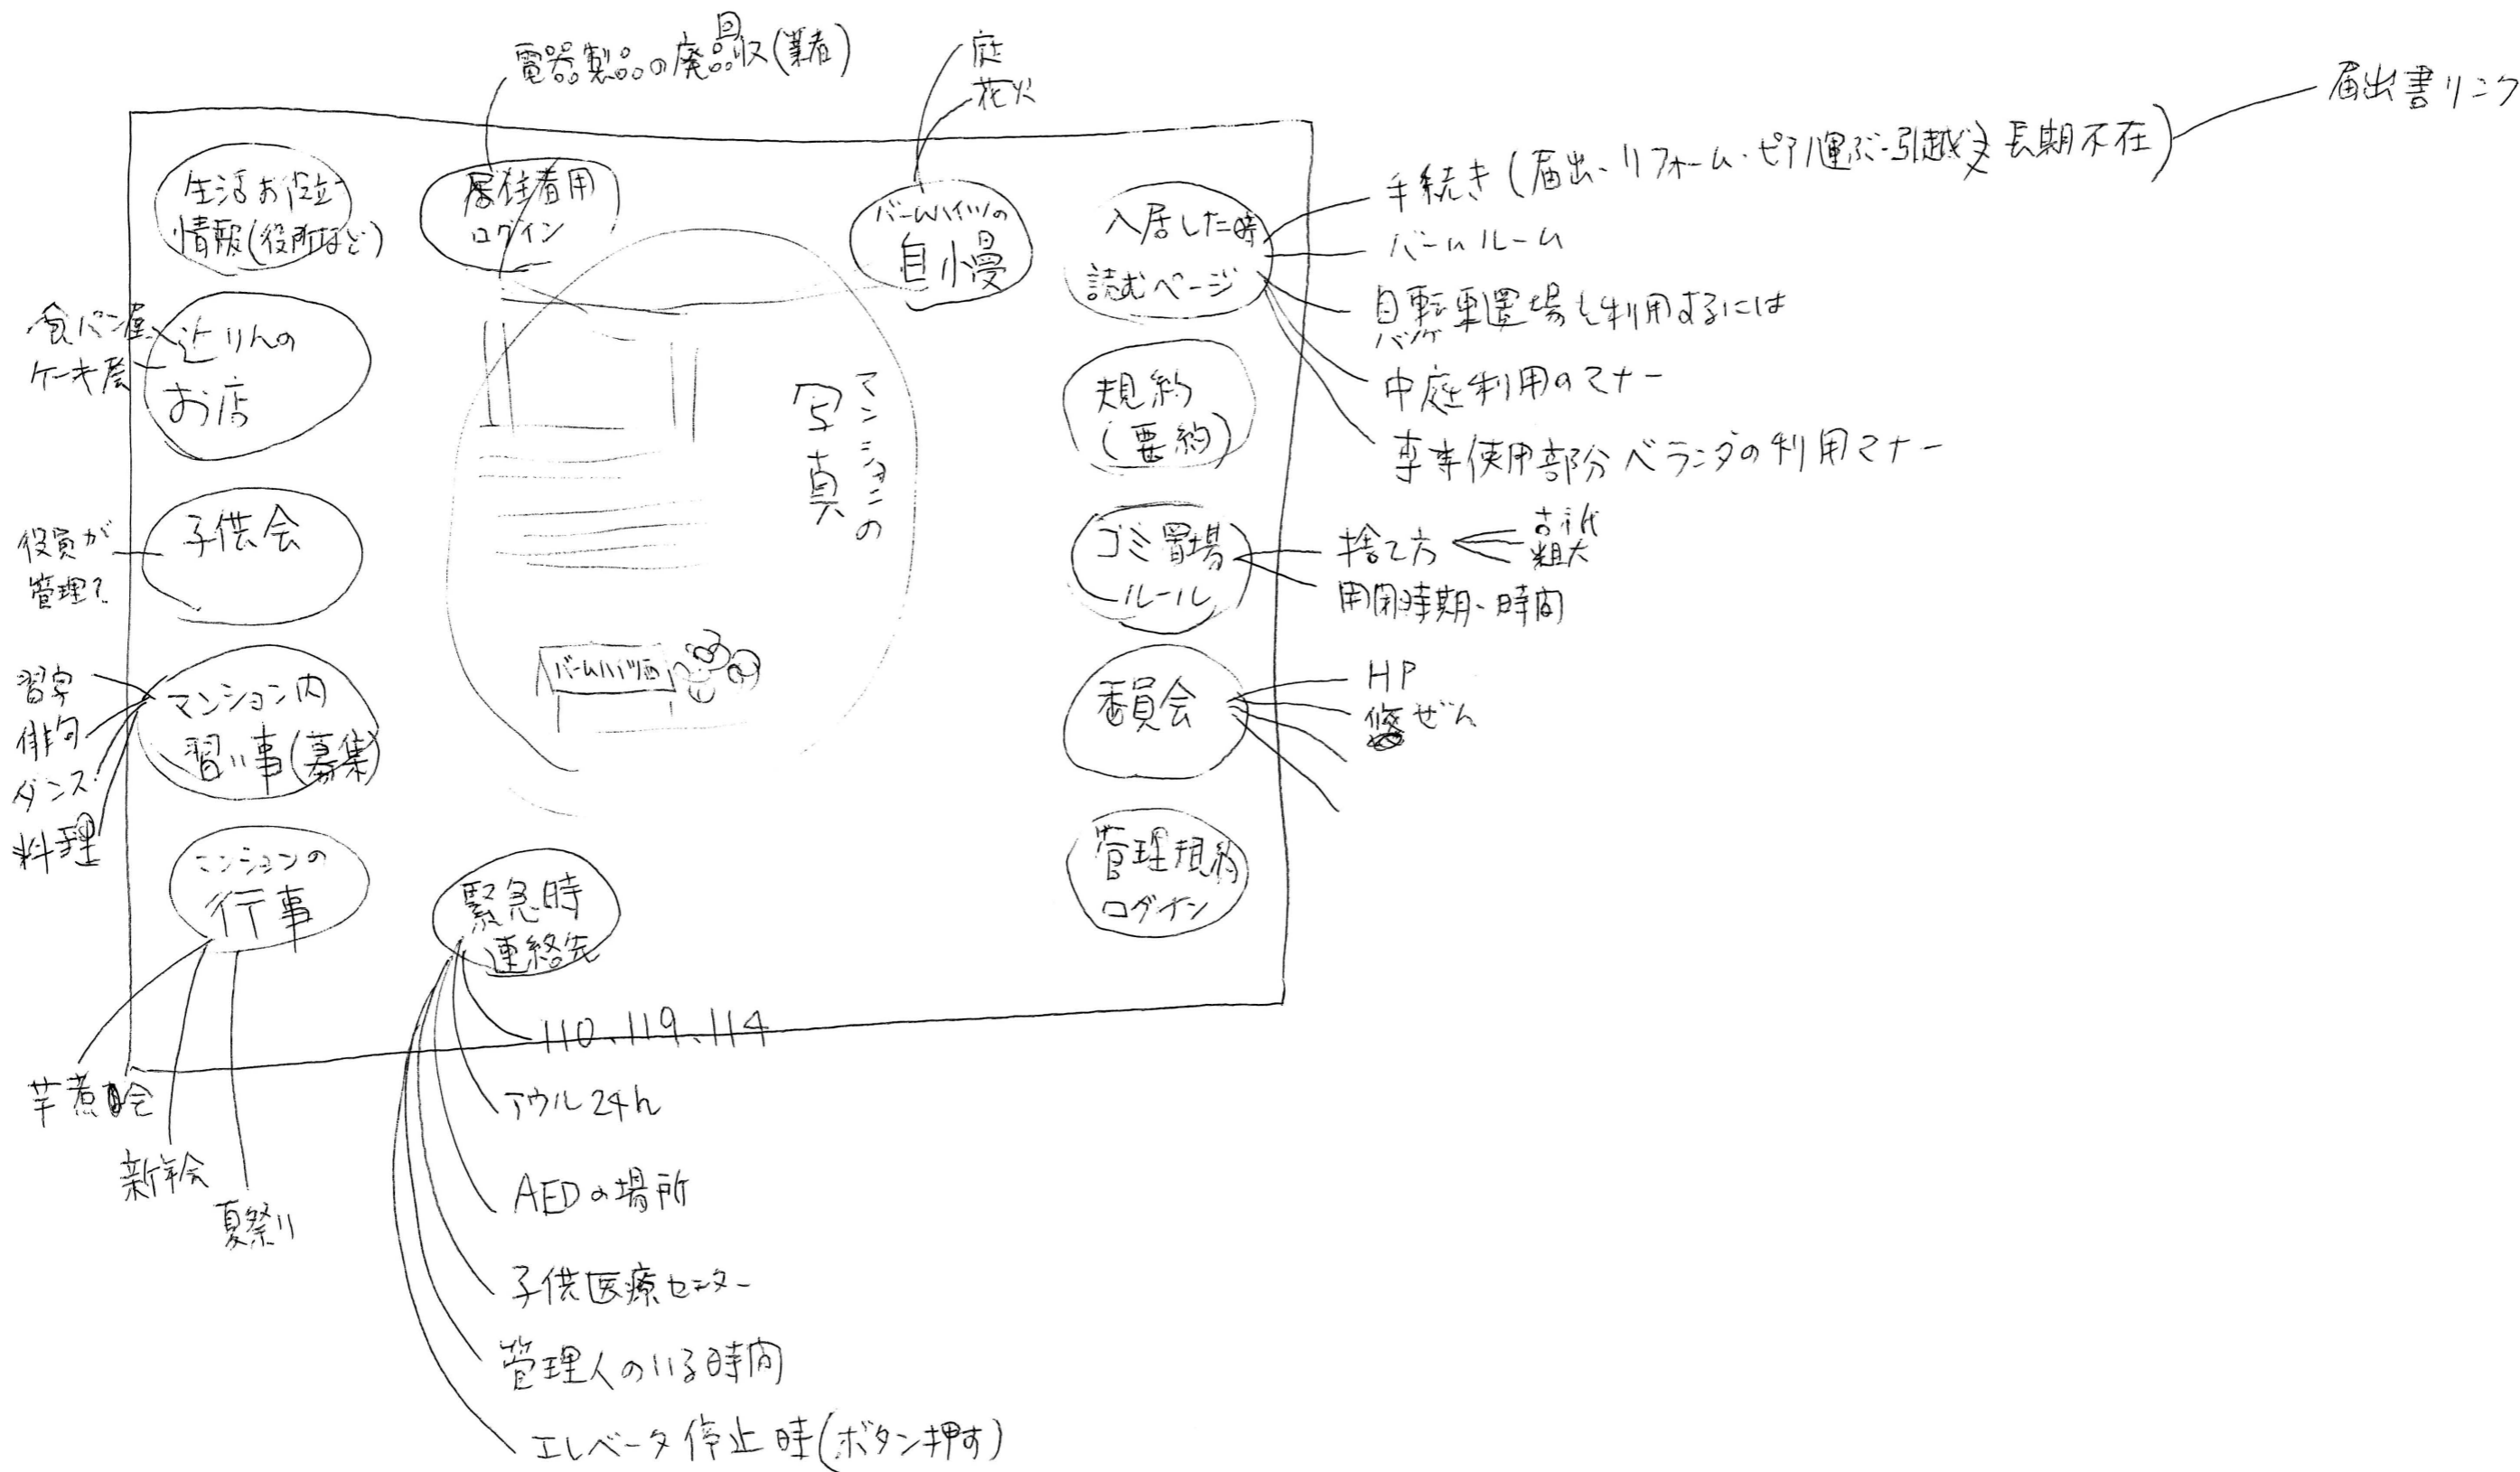 電器製品の廃品回収(業者)
庭
花火
届出書リンク
手続き(届出、リフォーム・ピアノ運ぶ・引越 長期不在)
生活お役立
情報(役所など)
居住者用
ログイン
パームハイツの
自慢
入居した時
読むページ
パームルーム
自転車置場も利用するには
バイク
中庭利用のマナー
専有使用部分ベランダの利用マナー
食パン屋
ケーキ屋
近りんの
お店
マンションの
写真
規約
(要約)
役員が
管理?
子供会
ゴミ置場
ルール
捨て方
古紙
粗大
開閉時期・時間
習字
俳句
ダンス
料理
マンション内
習い事(募集)
パームハイツ西
委員会
HP
修ぜん
マンションの
行事
緊急時
連絡先
管理規約
ログイン
110、119、114
芋煮会
新年会
夏祭り
アウル24h
AEDの場所
子供医療センター
管理人のいる時間
エレベータ停止時(ボタン押す)